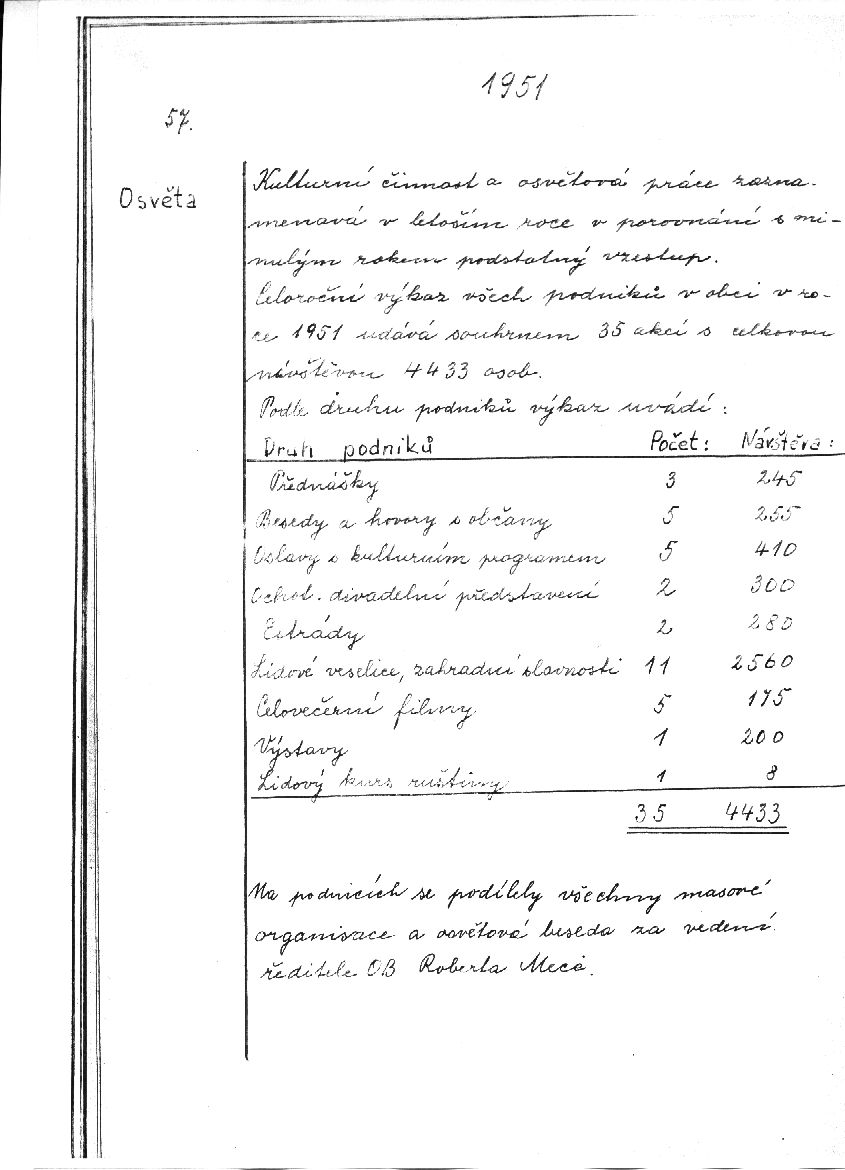 1951
57.
Osvěta
Kulturní činnost a osvětová práce zazna-
menavá v letošním roce v porovnání s mi-
nulým rokem podstatný vzestup.
Celoroční výkaz všech podniků v obci v ro-
ce 1951 udává souhrnem 35 akcí s celkovou
návštěvou 4433 osob.
Podle druhu podniků výkaz uvádí :
Druh podniků Počet : Návštěva :
Přednášky 3 245
Besedy a hovory s občany 5 255
Oslavy s kulturním programem 5 410
Ochot. divadelní představení 2 300
Estrády 2 280
Lidové veselice, zahradní slavnosti 11 2560
Celovečerní filmy 5 175
Výstavy 1 200
Lidový kurs ruštiny 1 8
35 4433
Na podnicích se podílely všechny masové
organisace a osvětová beseda za vedení
ředitele OB Roberta Meca.